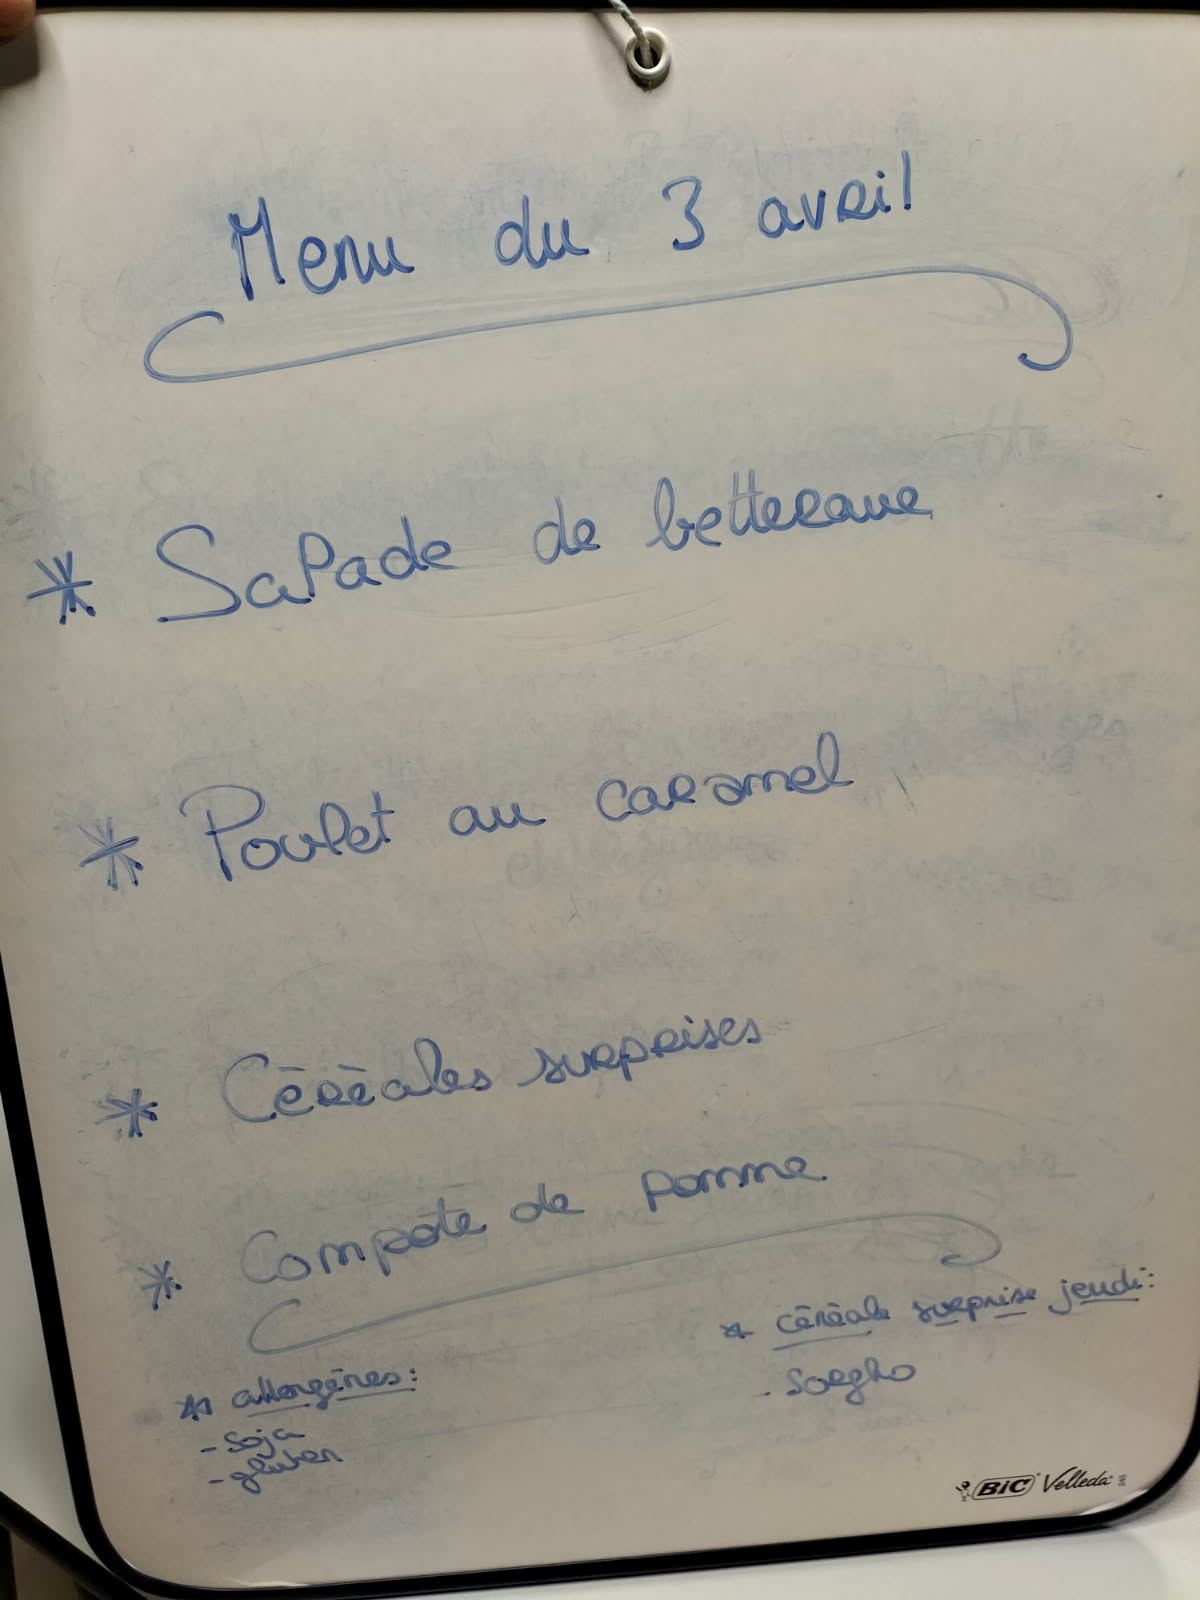 Menu du 3 avril
* Salade de betterave
* Poulet au caramel
* Céréales surprises
* Compote de pomme
* céréale surprise jeudi:
- Sorgho
* allergènes:
- soja
- gluten
BIC Velleda